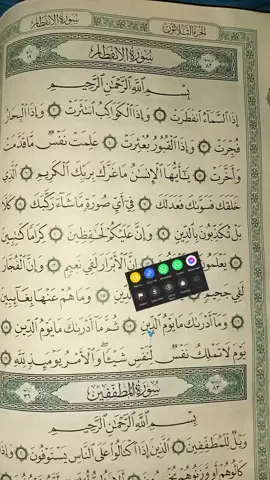 الجزء الثلاثون سورة الانفطار
سُورَةُ الانفِطَارِ
بِسْمِ اللَّهِ الرَّحْمَٰنِ الرَّحِيمِ
إِذَا السَّمَاءُ انفَطَرَتْ ١ وَإِذَا الْكَوَاكِبُ انتَثَرَتْ ٢ وَإِذَا الْبِحَارُ
فُجِّرَتْ ٣ وَإِذَا الْقُبُورُ بُعْثِرَتْ ٤ عَلِمَتْ نَفْسٌ مَّا قَدَّمَتْ
وَأَخَّرَتْ ٥ يَٰأَيُّهَا الْإِنسَٰنُ مَا غَرَّكَ بِرَبِّكَ الْكَرِيمِ ٦ الَّذِي
خَلَقَكَ فَسَوَّىٰكَ فَعَدَلَكَ ٧ فِي أَيِّ صُورَةٍ مَّا شَاءَ رَكَّبَكَ ٨ كَلَّا
بَلْ تُكَذِّبُونَ بِالدِّينِ ٩ وَإِنَّ عَلَيْكُمْ لَحَٰفِظِينَ ١٠ كِرَامًا كَٰتِبِينَ
يَعْلَمُونَ إِنَّ الْأَبْرَارَ لَفِي نَعِيمٍ ١٣ وَإِنَّ الْفُجَّارَ
لَفِي جَحِيمٍ ١٥ وَمَا هُمْ عَنْهَا بِغَائِبِينَ
وَمَا أَدْرَىٰكَ مَا يَوْمُ الدِّينِ ١٧ ثُمَّ مَا أَدْرَىٰكَ مَا يَوْمُ الدِّينِ ١٨
يَوْمَ لَا تَمْلِكُ نَفْسٌ لِّنَفْسٍ شَيْئًا وَالْأَمْرُ يَوْمَئِذٍ لِّلَّهِ ١٩
سُورَةُ المُطَفِّفِينَ
بِسْمِ اللَّهِ الرَّحْمَٰنِ الرَّحِيمِ
وَيْلٌ لِّلْمُطَفِّفِينَ ١ الَّذِينَ إِذَا اكْتَالُوا عَلَى النَّاسِ يَسْتَوْفُونَ ٢ وَإِذَا
كَالُوهُمْ أَو وَّزَنُوهُمْ يُخْسِرُونَ